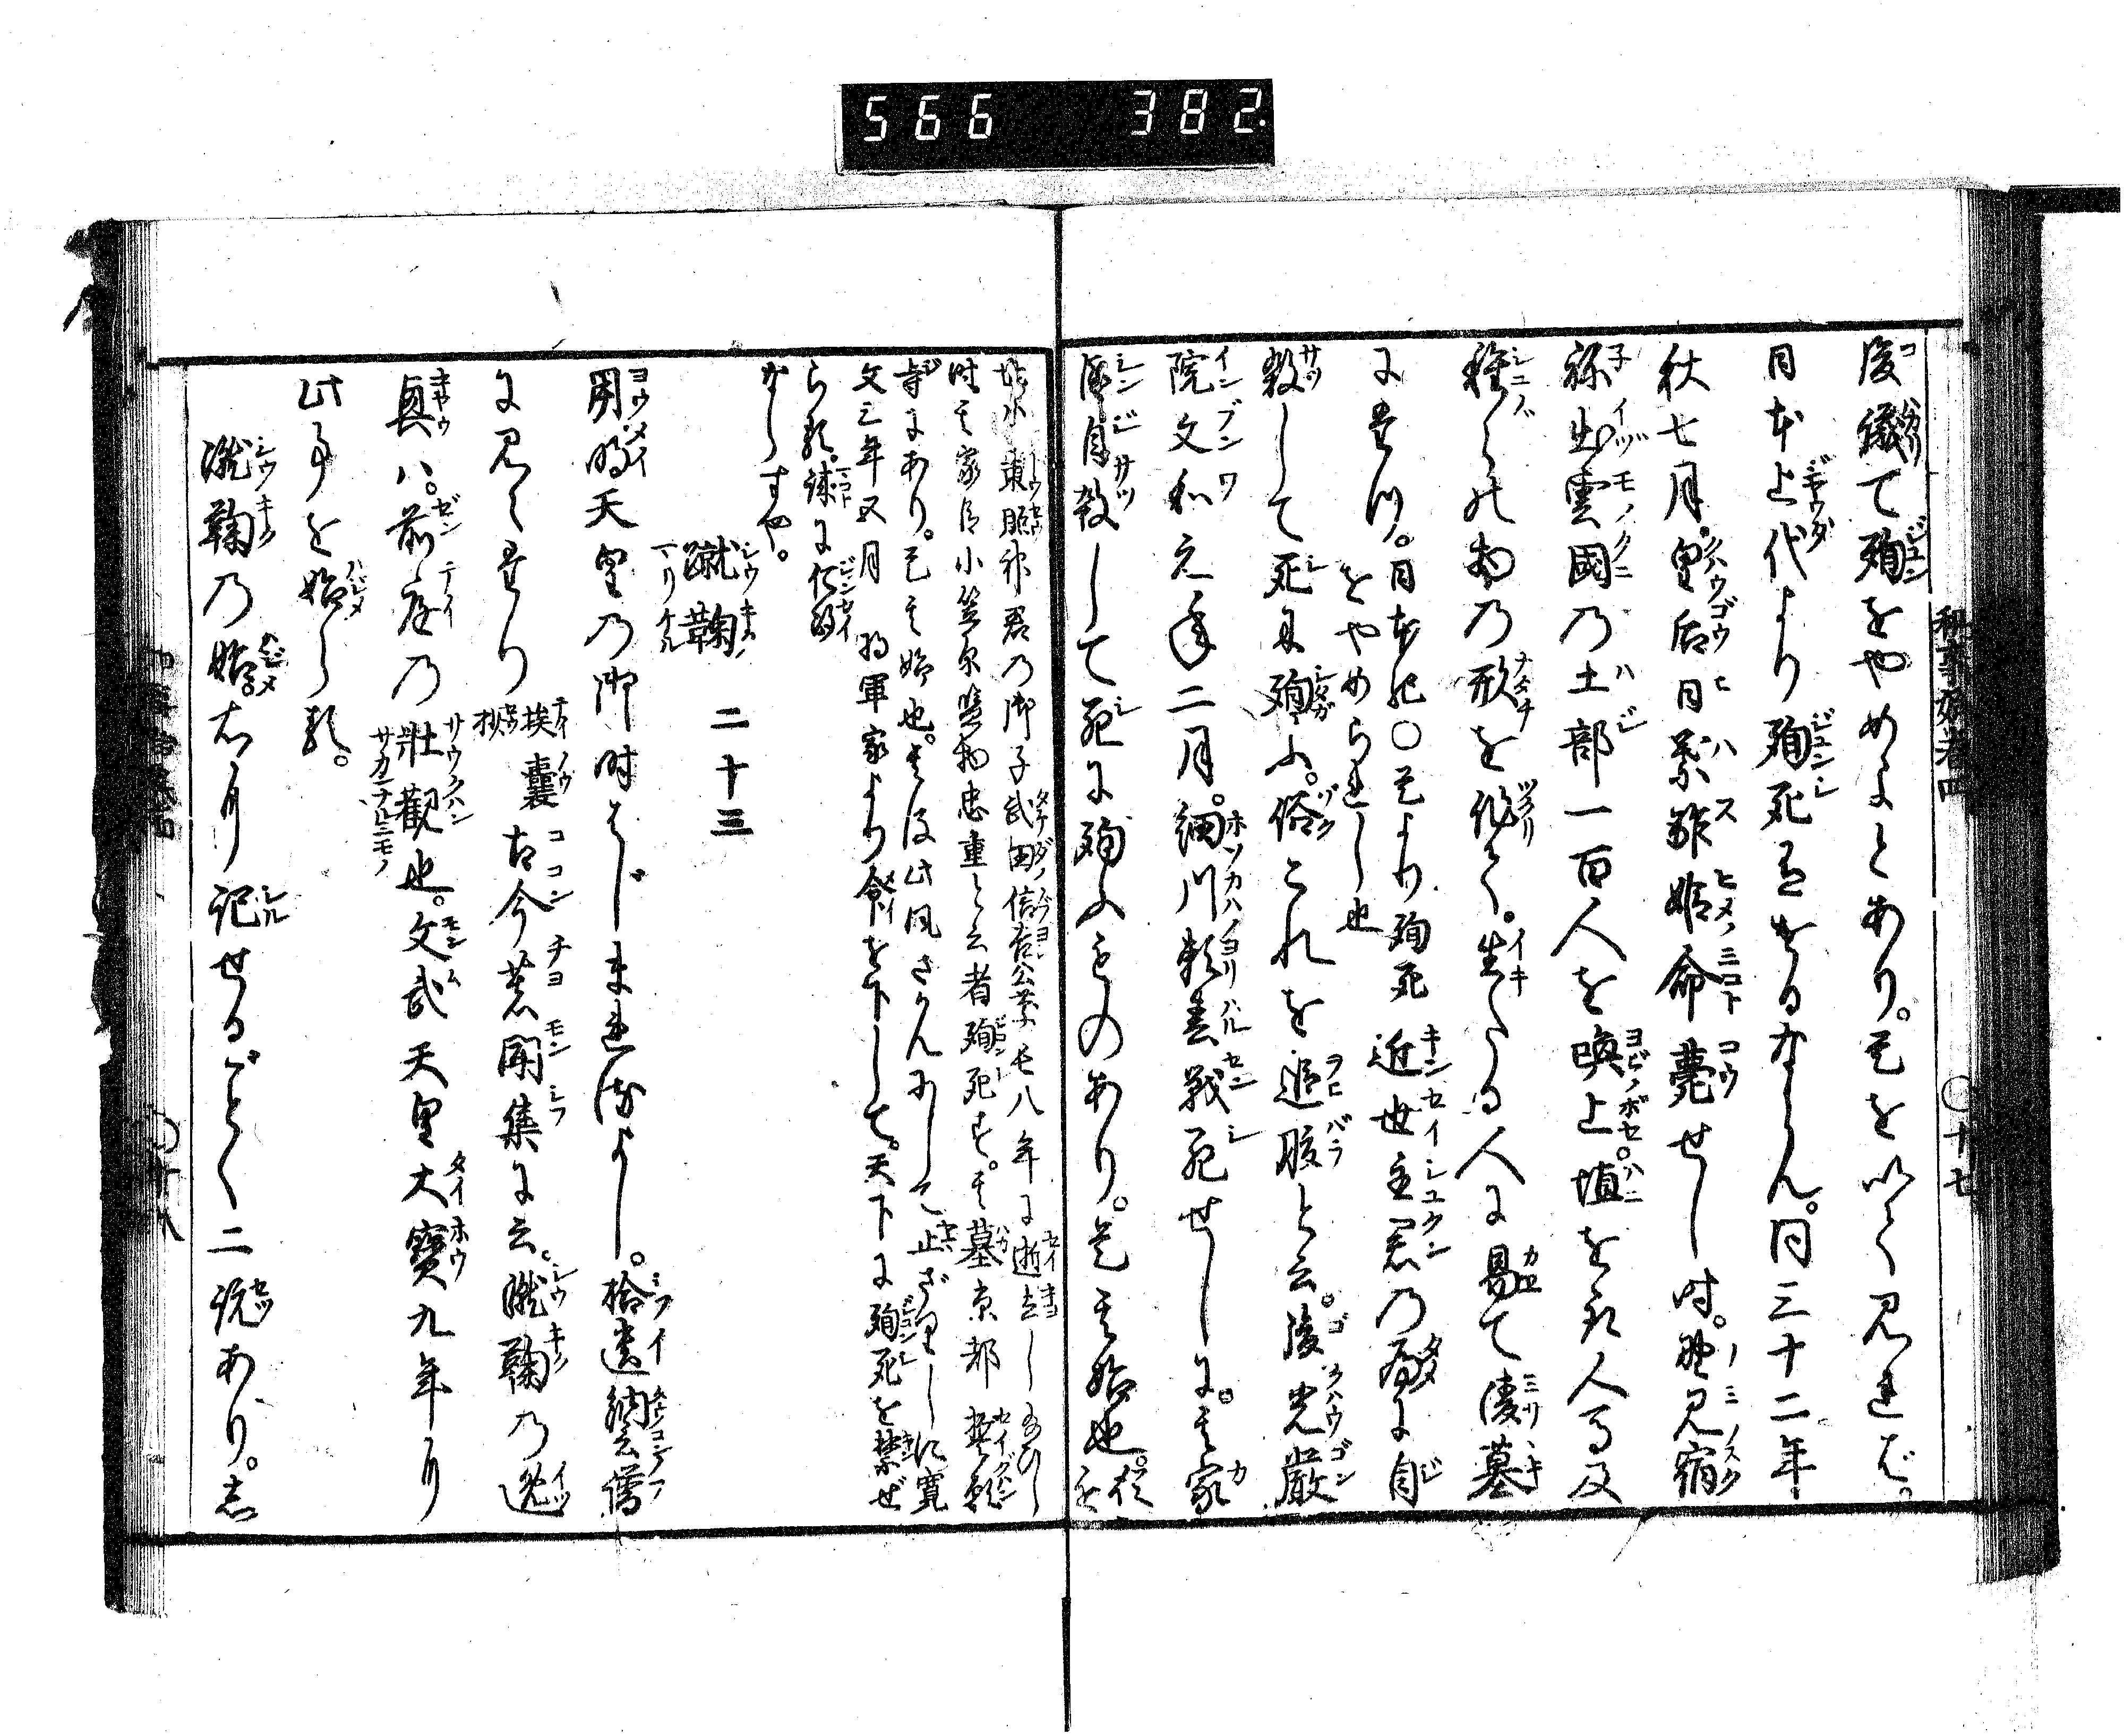 566 382.
後議て殉をやめよとあり。是を以て見れば。
日本上代より殉死有けるならん。同三十二年
秋七月。皇后日葉酢媛命薨せし時。野見宿
祢出雲國の土部一百人を喚上。埴を取人馬及
種々の物の形を作て。生たる人に易て陵墓
に立つ。日本紀〇是より殉死
をやめられし也
近世主君の為に自
殺して死に殉ふ。俗これを追腹と云。後光嚴
院文和元年二月。細川頼春戰死せしに。其家
臣自殺して死に殉ふものあり。是其始也。
神君の御子武田信吉公慶長八年に逝去し給ひし
時其家臣小笠原監物忠重と云者殉死す。其墓京都誓願
寺にあり。是其始也。其後此風さかんにして止ざりしに寛
文三年五月将軍家より命を下して。天下に殉死を禁ぜ
らる。誠に仁政
ならずや。
蹴鞠 二十三
用明天皇の御時はじまれるよし。拾遺納言傳
に見えたり
埃囊抄
古今著聞集に云。蹴鞠の逸
興ハ。前庭の壮観也。文武天皇大寶九年に
此事を始らる。
蹴鞠の始。右に記せるごとく二説あり。志
和事始巻四 〇十七
〇十八